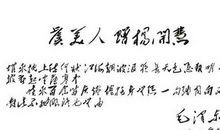 虞美人 赠杨开慧
堆来枕上愁何状江海翻波浪夜长天色总难明
披衣起坐薄寒中
晓来百念皆灰烬倦极身无凭一勾残月向西
对此不抛眼泪也无由
毛泽东